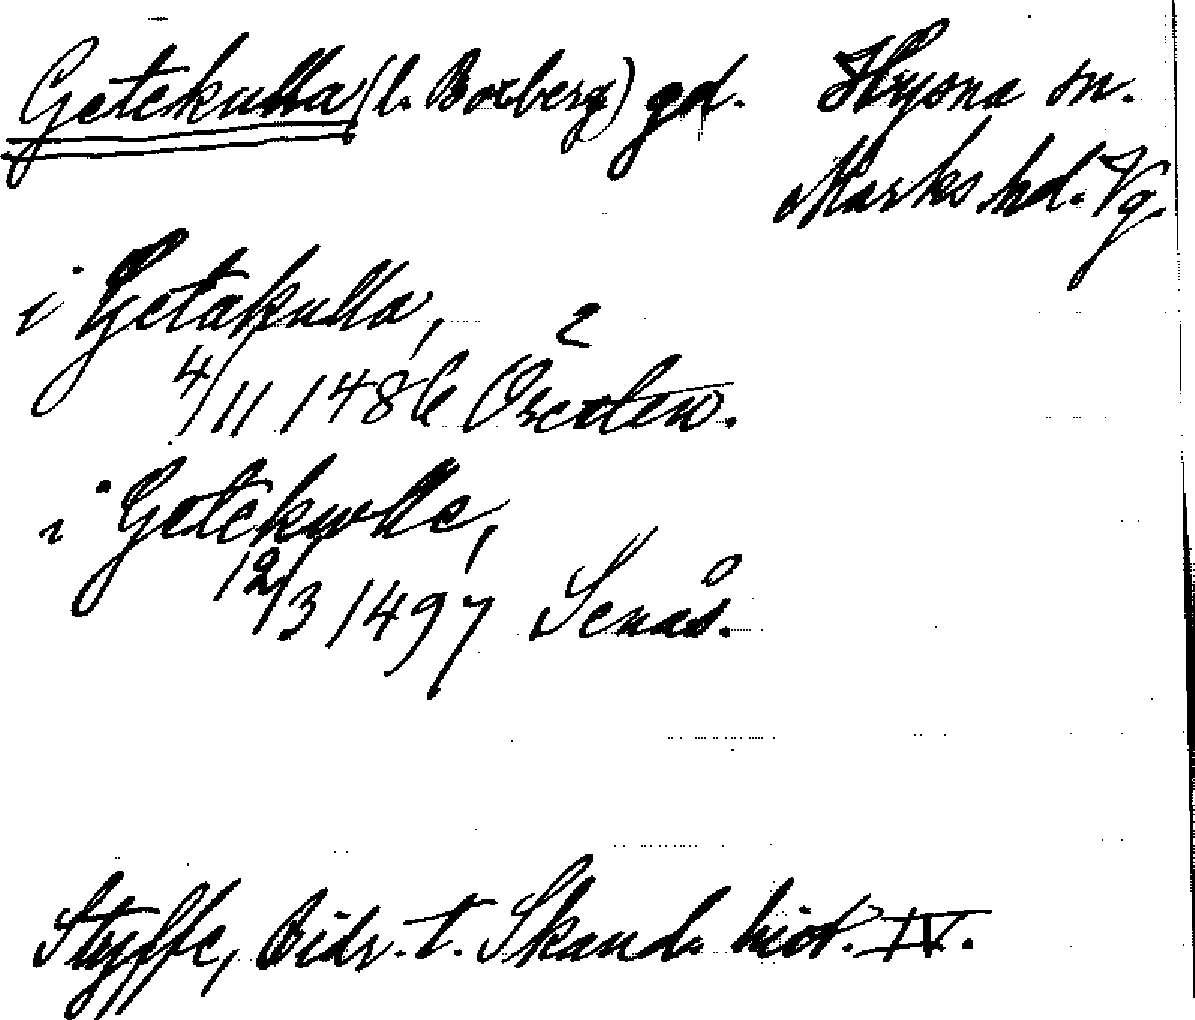 Getekulla (l. Boxberg) gd. Hyssna sn.
Marks hd. Vg.
i Getakulla,
4/11 1486 Örsten.
i Getekulle,
12/3 1497 Senås.
Styffe, Bidr. t. Skand. hist. IV.